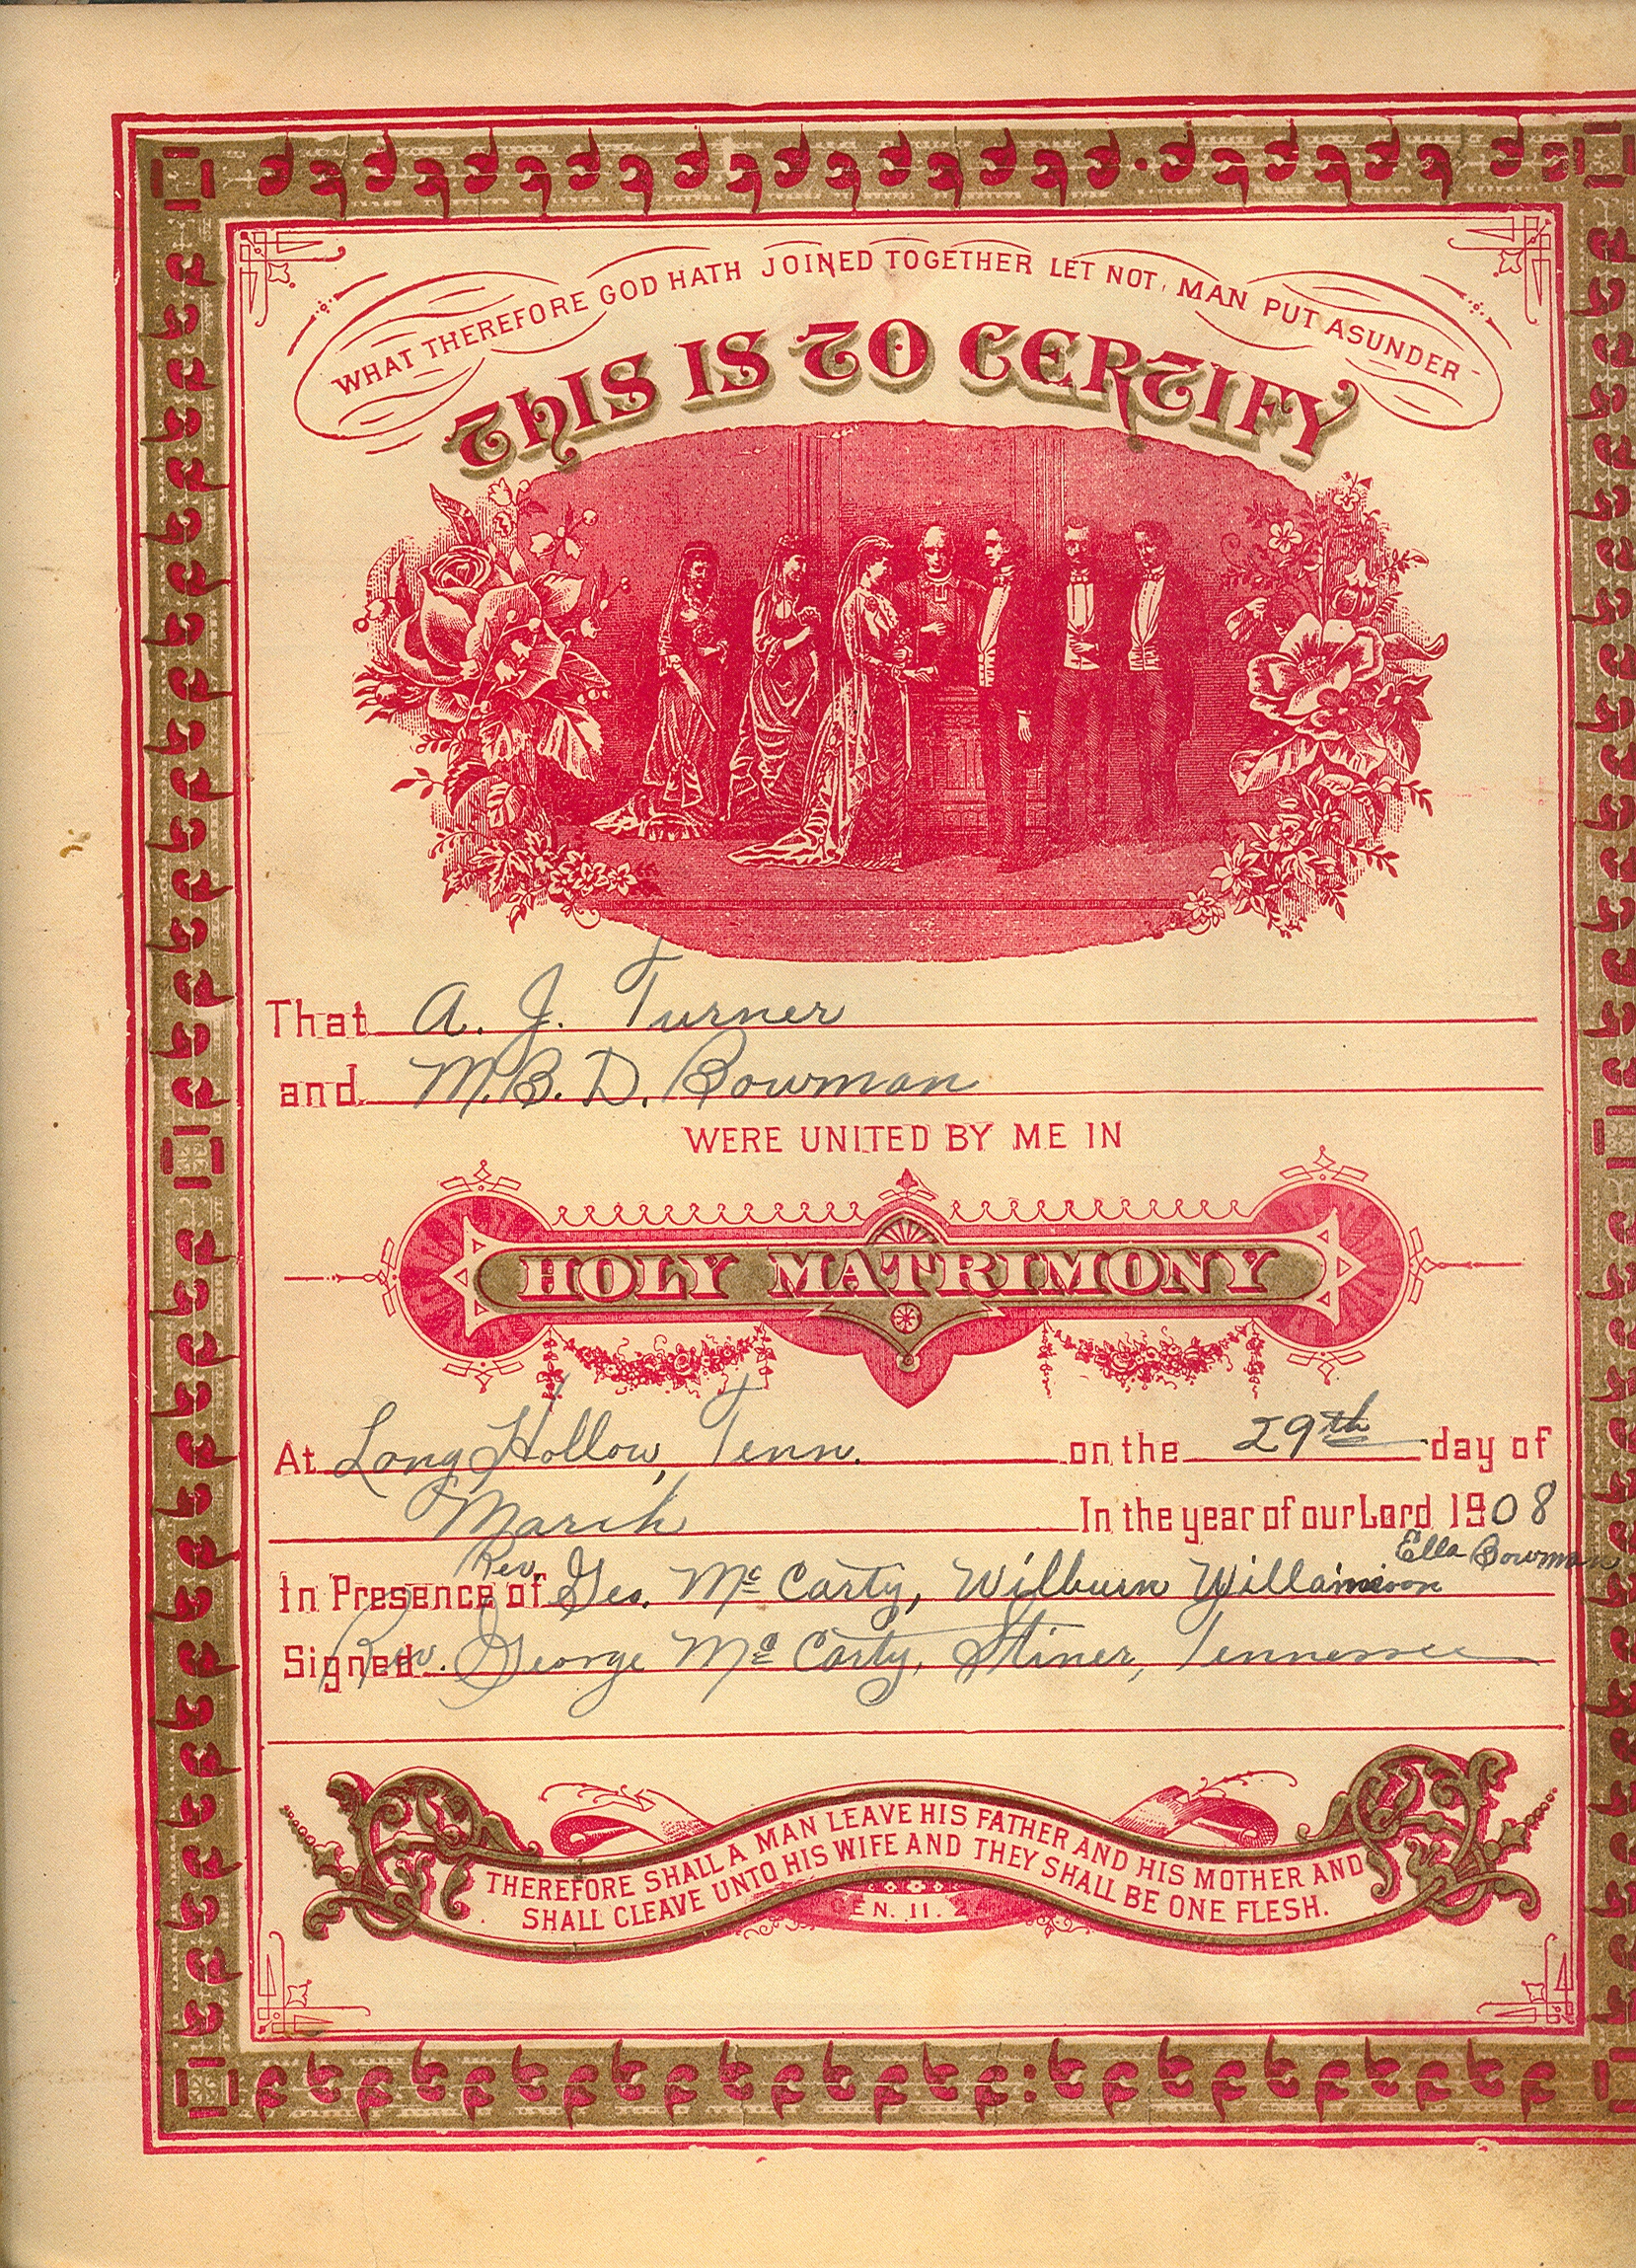 WHAT THEREFORE GOD HATH JOINED TOGETHER LET NOT MAN PUT ASUNDER
THIS IS TO CERTIFY
That A. J. Turner
and M. B. D. Bowman
WERE UNITED BY ME IN
HOLY MATRIMONY
At Long Hollow, Tenn. on the 29th day of
March In the year of our Lord 1908
Ella Bowman
In Presence of Rev. Geo. McCarty, Wilburn
Signed Rev. George McCarty, Stiner, Tennessee
THEREFORE SHALL A MAN LEAVE HIS FATHER AND HIS MOTHER AND
SHALL CLEAVE UNTO HIS WIFE AND THEY SHALL BE ONE FLESH.
GEN. II. 24